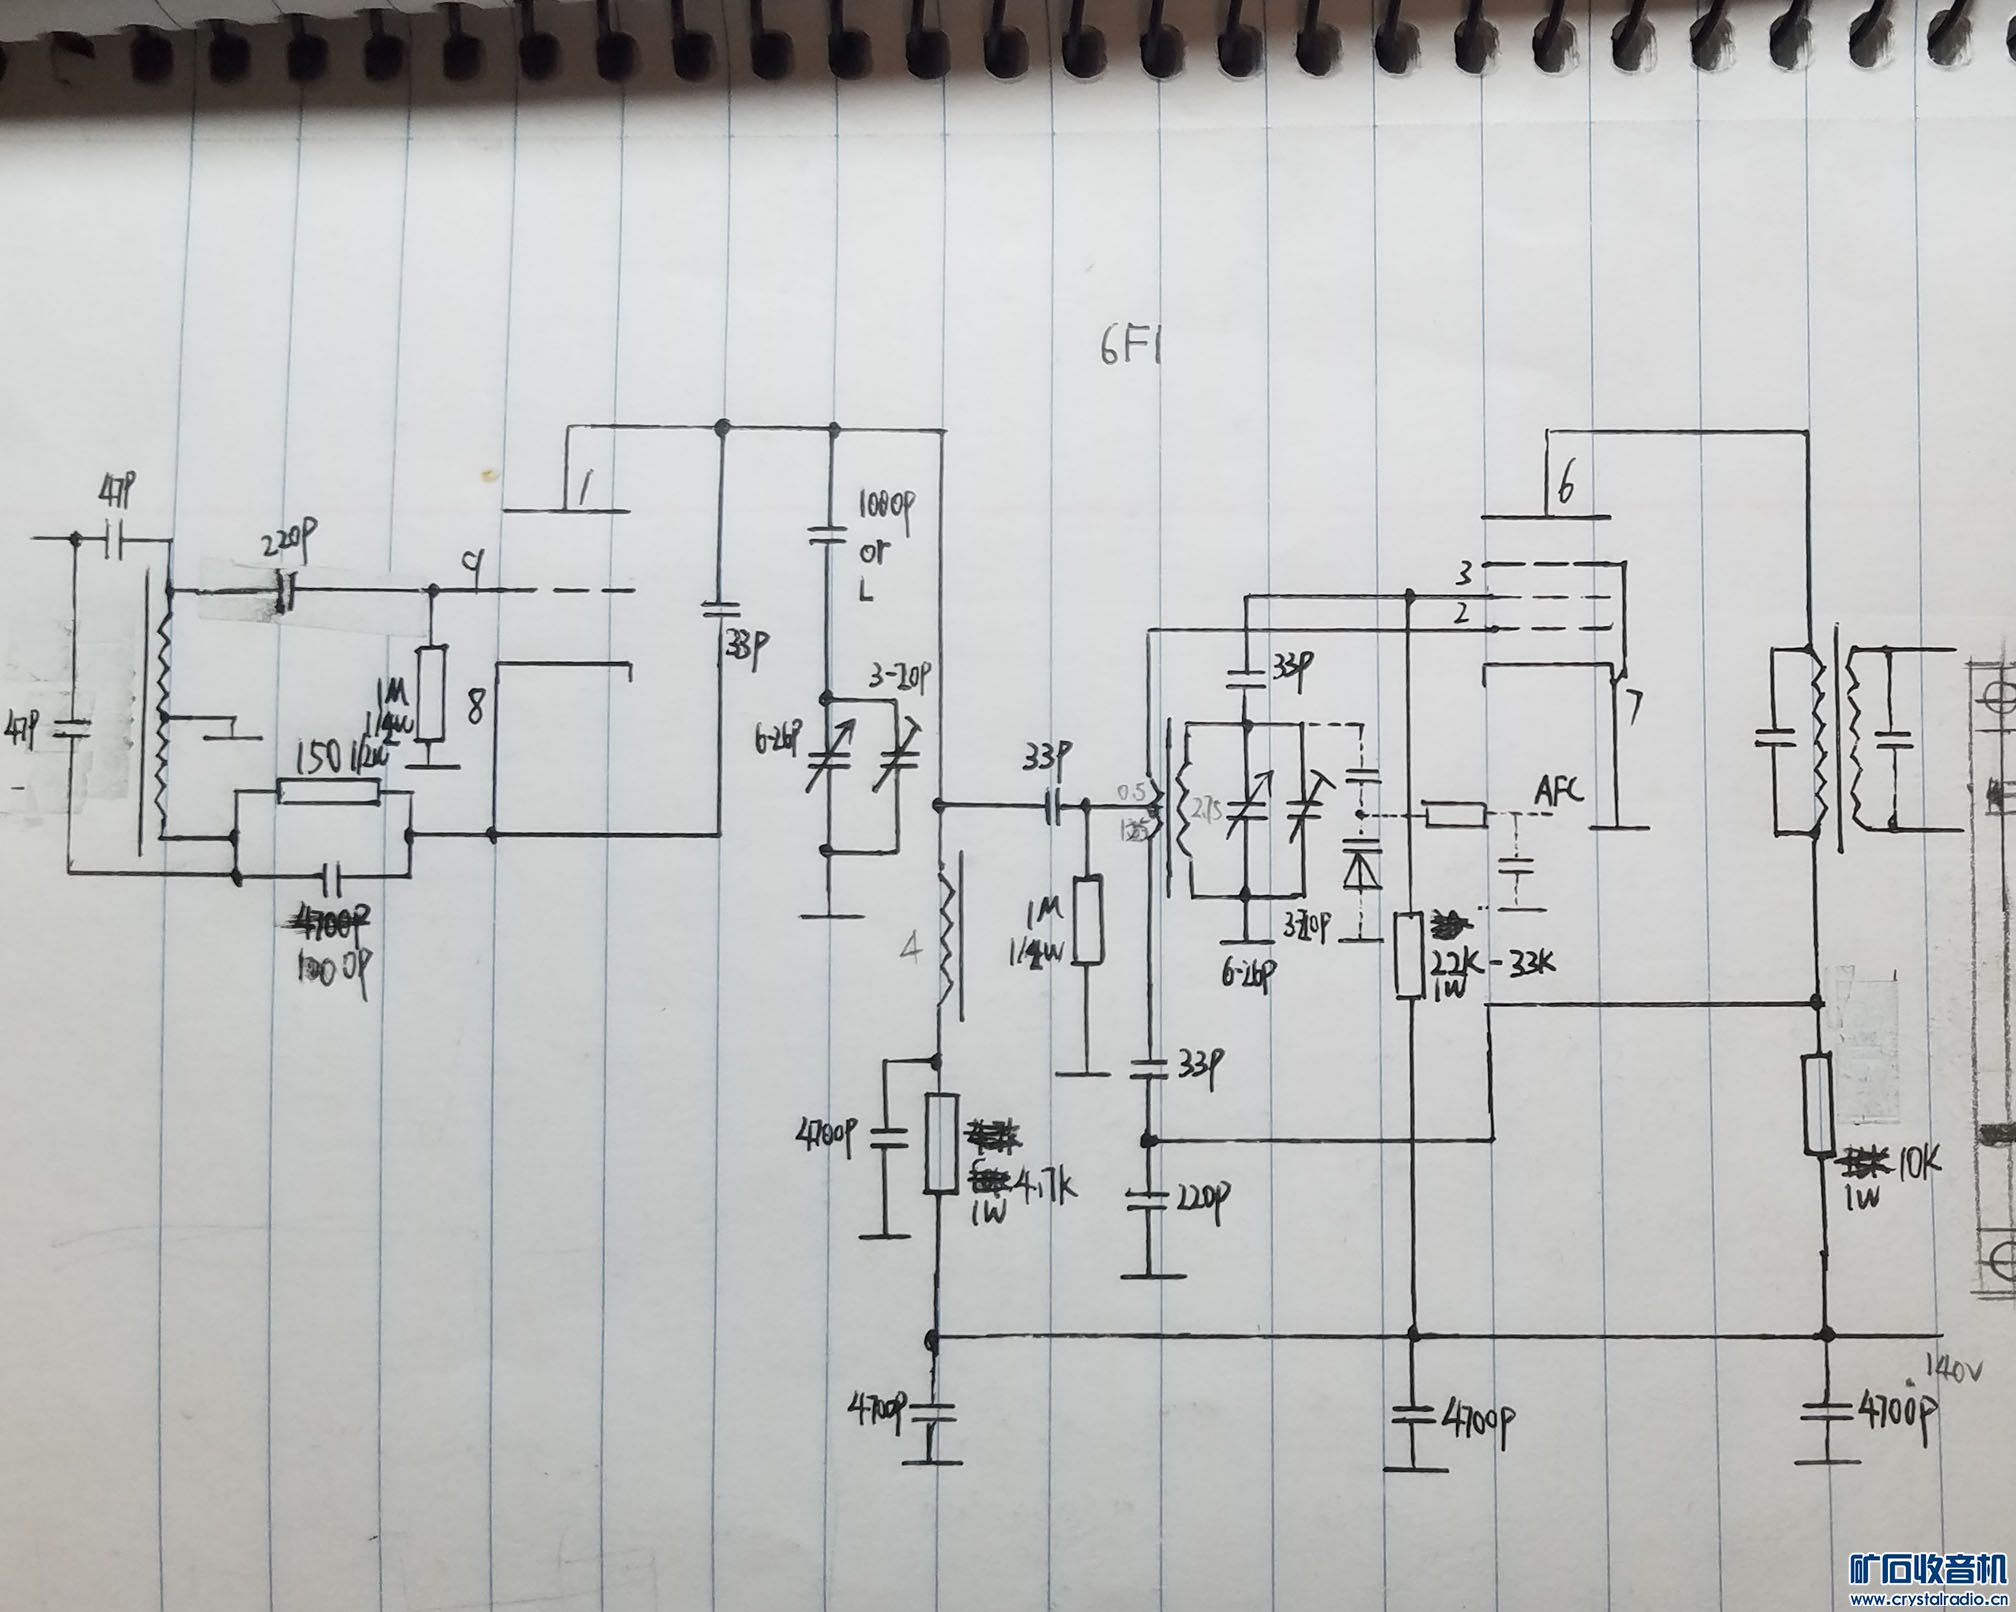 6F1
47P
220P
9
1
1M
1/4W
8
47P
150 1/2W
1000P
33P
1000P
or
L
3-20P
6-26P
33P
0.5
4
1M
1/4W
4700P
4.7K
1W
33P
220P
33P
2.75
6-26P
AFC
22K-33K
1W
3
2
6
7
10K
1W
140V
4700P
4700P
4700P
矿石收音机
www.crystalradio.cn